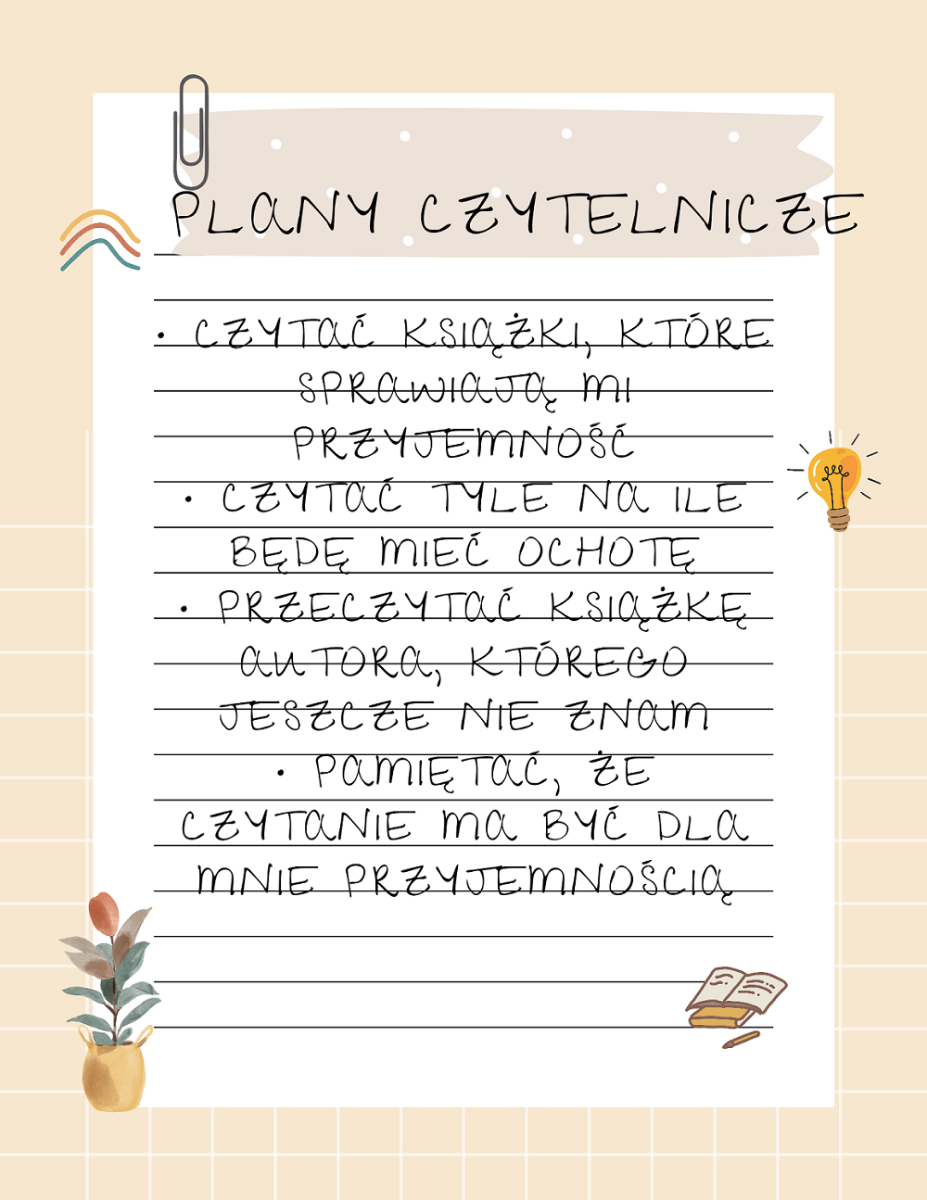 PLANY CZYTELNICZE
• CZYTAĆ KSIĄŻKI, KTÓRE
SPRAWIAJĄ MI
PRZYJEMNOŚĆ
• CZYTAĆ TYLE NA ILE
BĘDĘ MIEĆ OCHOTĘ
• PRZECZYTAĆ KSIĄŻKĘ
AUTORA, KTÓREGO
JESZCZE NIE ZNAM
• PAMIĘTAĆ, ŻE
CZYTANIE MA BYĆ DLA
MNIE PRZYJEMNOŚCIĄ